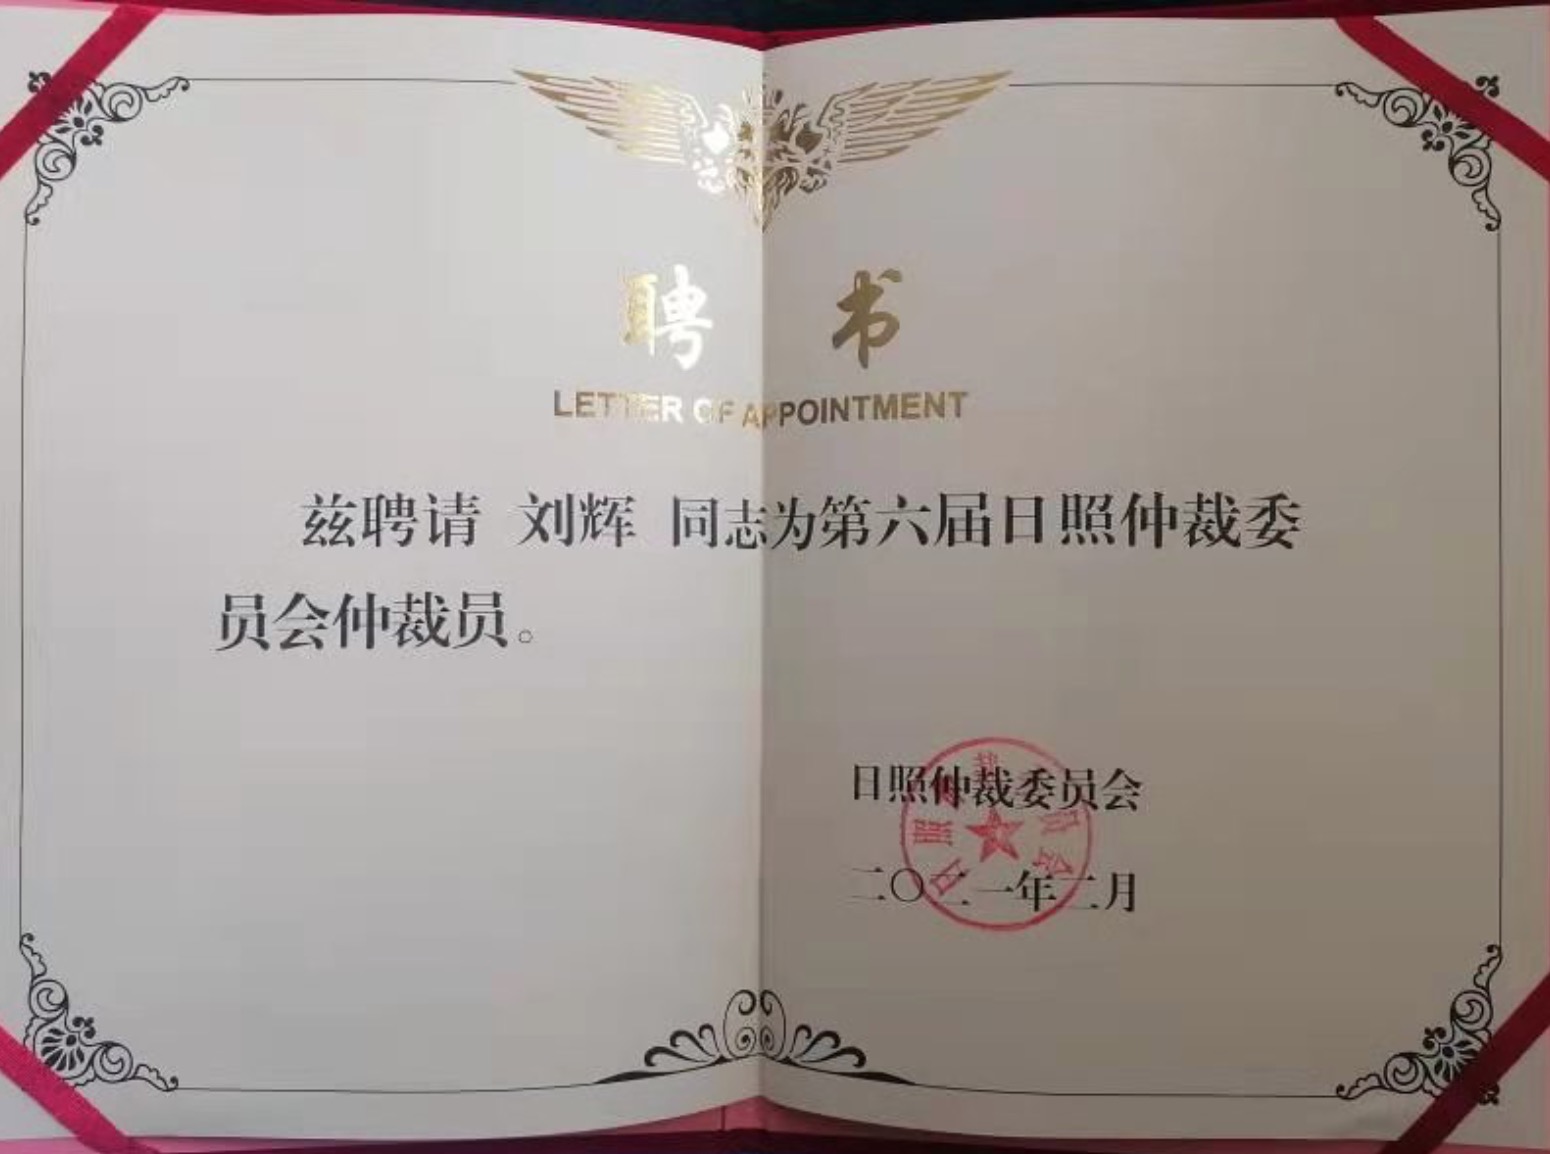 聘书
LETTER OF APPOINTMENT
兹聘请 刘辉 同志为第六届日照仲裁委
员会仲裁员。
日照仲裁委员会
二〇二一年二月